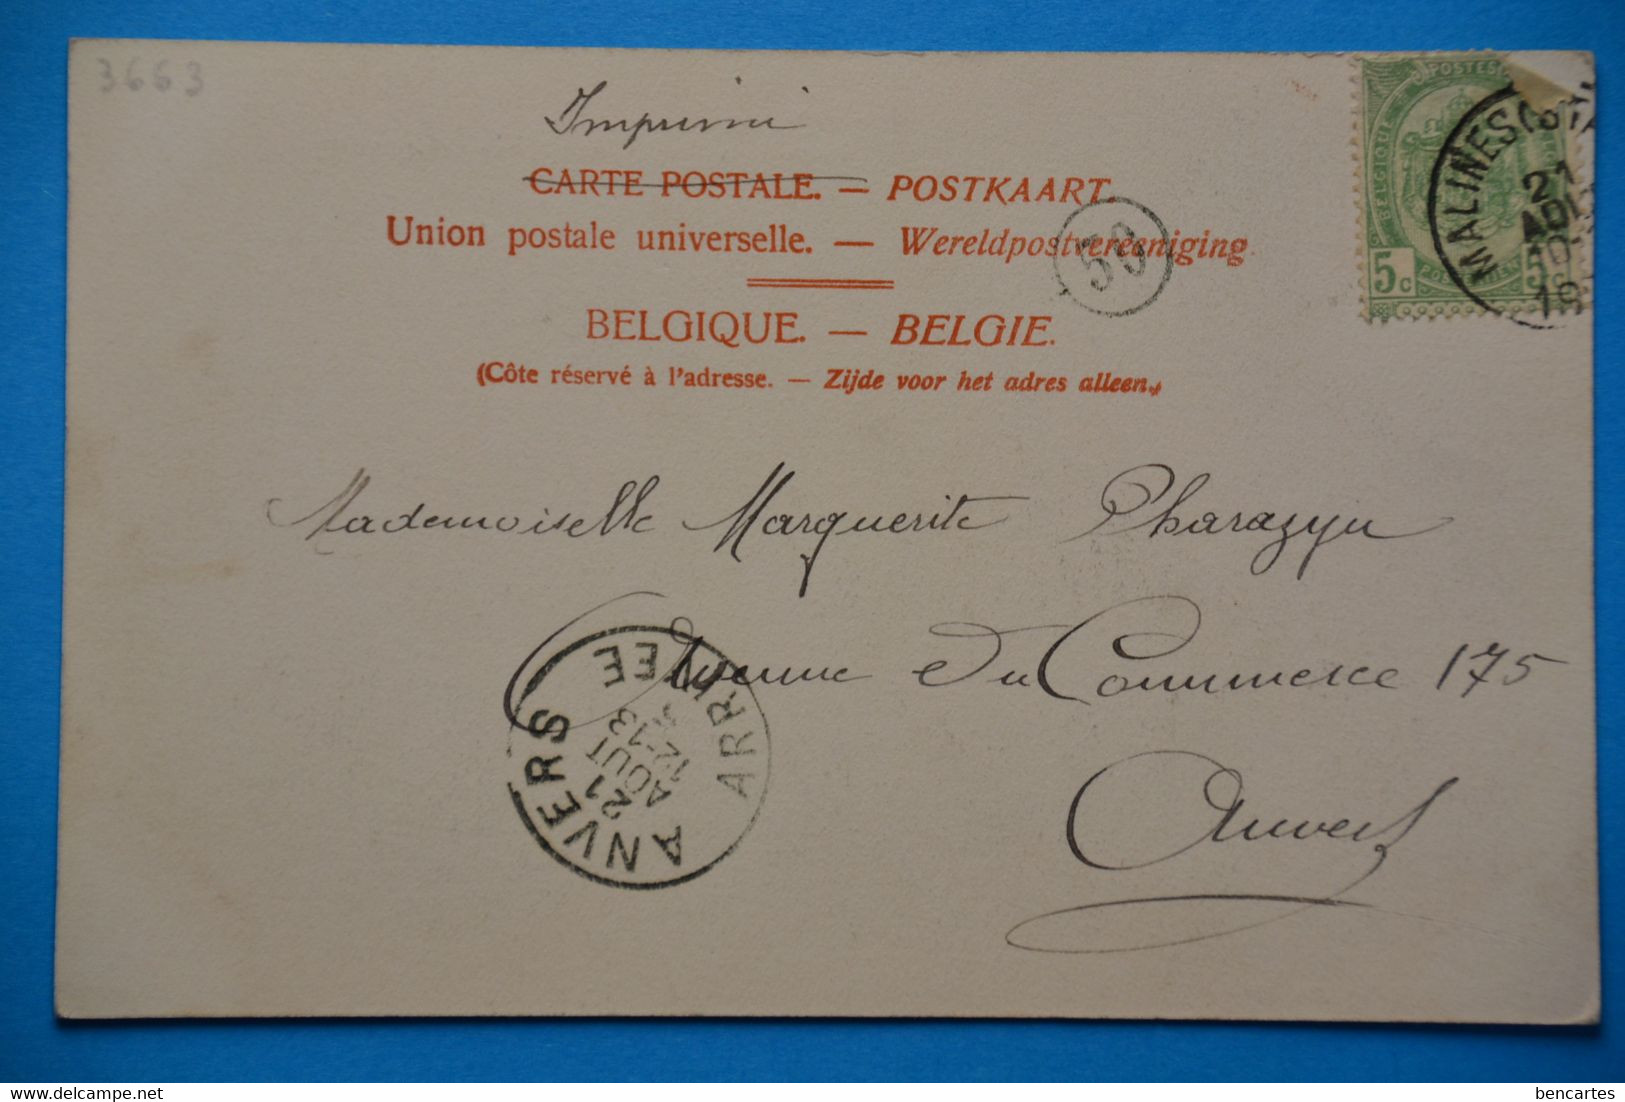 3663
Imprimé
CARTE POSTALE. — POSTKAART.
Union postale universelle. — Wereldpostvereeniging.
30
BELGIQUE. — BELGIE.
(Côte réservé à l'adresse. — Zijde voor het adres alleen.)
POSTES
BELGIQUE
5c
5c
MALINES (STA
21
AOU
10-
19
Mademoiselle Marguerite Pharazyn
Avenue du Commerce 175
Anvers
ANVERS
21
AOUT
12-13
ARRIVEE
bencartes